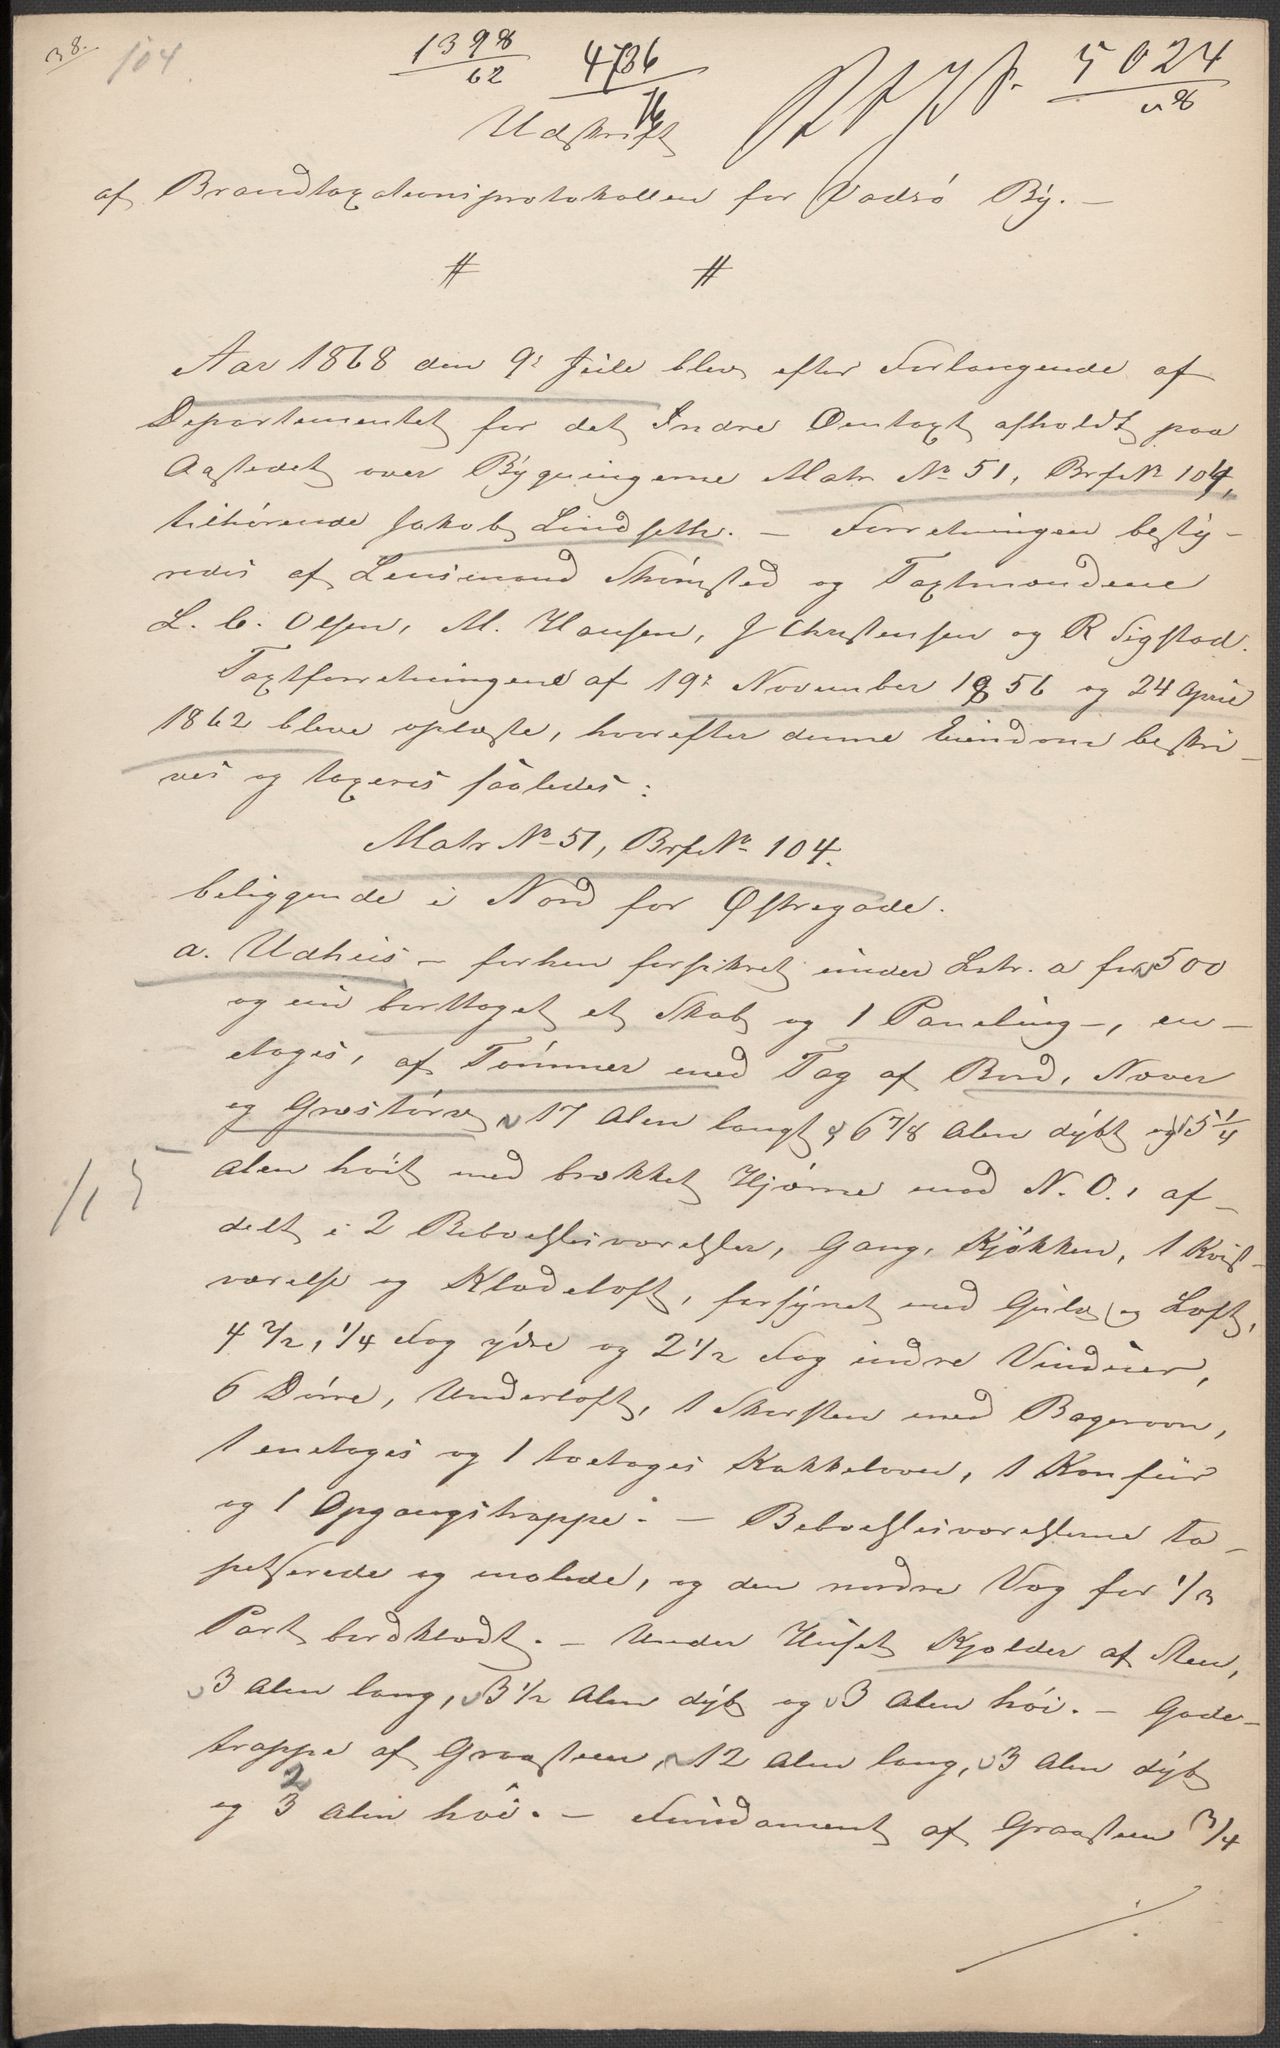 38. 104. 1398/62 4736/76 5024/58
Udskrift
af Brandtaxationsprotokollen for Vadsö By. —
# #
Aar 1868 den 9de Juli blev efter Forlangende af
Departementet for det Indre Omtaxt afholdt paa
Aastedet over Bygningerne Matr No 51, Brf No 104,
tilhörende Jakob Lindseth. — Forretningen besty-
redes af Lensmand Skömsted og Taxtmændene
L. C. Olsen, M. Hansen, J Christensen og R Sigstad.
Taxtforretningene af 19de November 1856 og 24 April
1862 bleve oplæste, hvorefter denne Eiendom beskri-
ves og taxeres saaledes:
Matr No 51, Brf No 104.
beliggende i Nord for Østregade.
a. Udhus — forhen forsikret under Litr. a for 500
og nu borttaget et Skab og 1 Paneling —, en-
etages, af Tömmer med Tag af Bord, Næver
og Græstörv, 17 Alen langt, 6 7/8 Alen dybt og 5 1/4
Alen höit med brækket Hjörne mod N. O., af-
delt i 2 Beboelsesværelser, Gang, Kjökken, 1 Kvist-
værelse og Klædeloft, forsynet med Gulv og Loft,
4 2/2, 1/4 Fag ydre og 2 1/2 Fag indre Vinduer,
6 Dörre, Underloft, 1 Skorsten med Bagerovn,
1 enetages og 1 toetages Kakkelovn, 1 Komfür
og 1 Opgangstrappe. — Beboelsesværelserne ta-
petserede og malede, og den nordre Væg for 1/3
Part bordklædt. — Under Huset Kjælder af Sten,
3 Alen lang, 3 1/2 Alen dyb og 3 Alen höi. — Gade-
trappe af Graasteen, 12 Alen lang, 3 Alen dyb
2
og 3 Alen höi. — Fundament af Graasteen 3/4
115